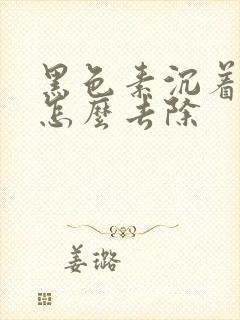 黑色素沉着
怎麼去除
姜璐